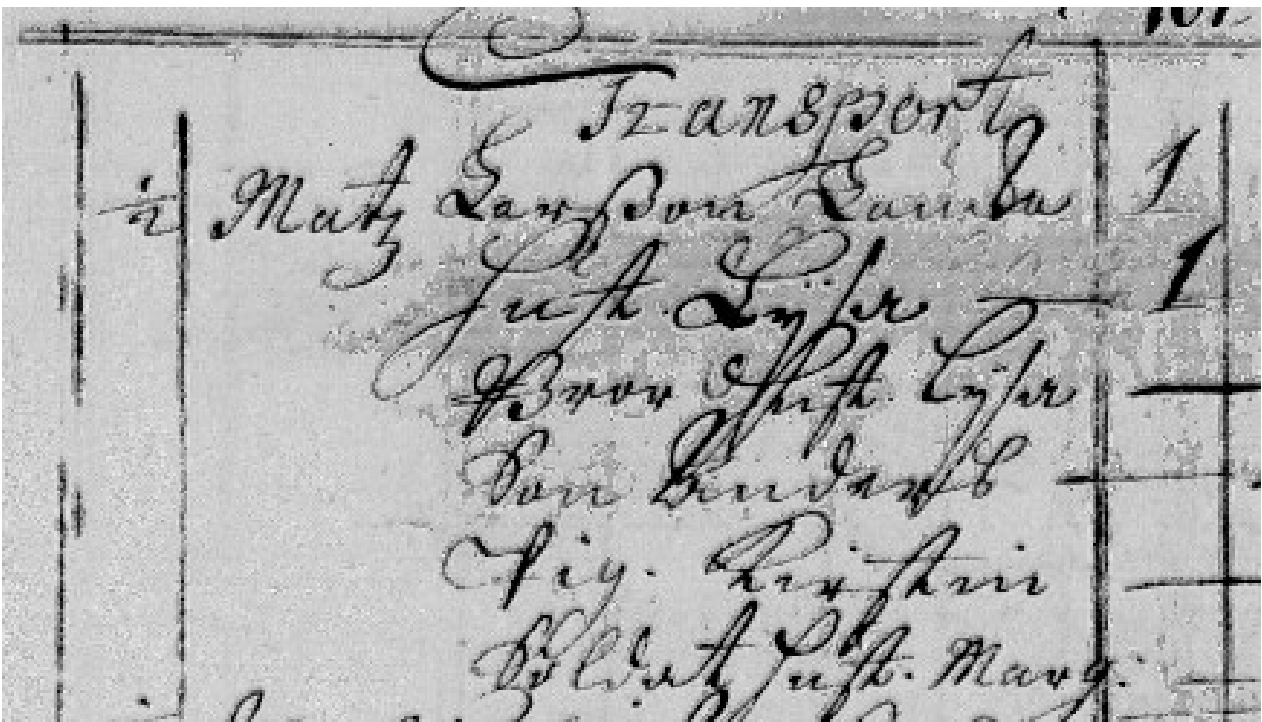 Transport
½ Matz Larsson 1
Hust. Lÿsa 1
Bror Hust. Lÿsa
Son Anders
Pig. Kirstin
Soldat Hust. Marg: